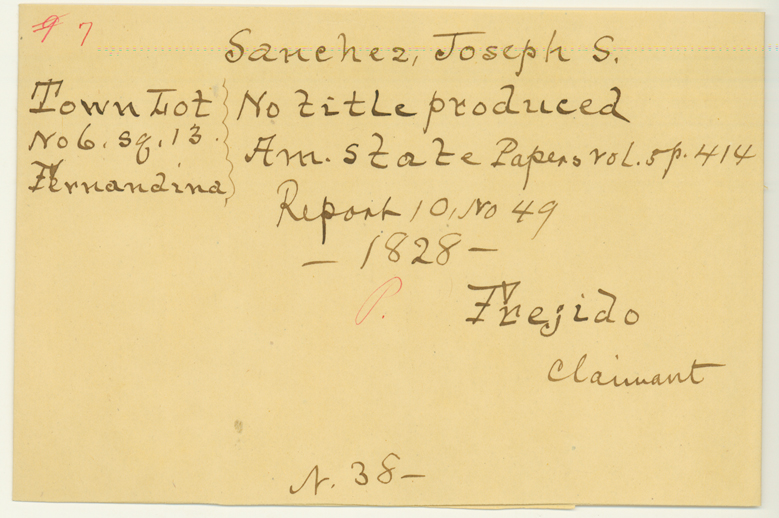 9 7
Sanchez, Joseph S.
Town Lot
No 6. Sq. 13.
Fernandina,
No title produced
Am. State Papers vol. 5 p. 414
Report 10, No 49
— 1828 —
P.
claimant
N. 38 —